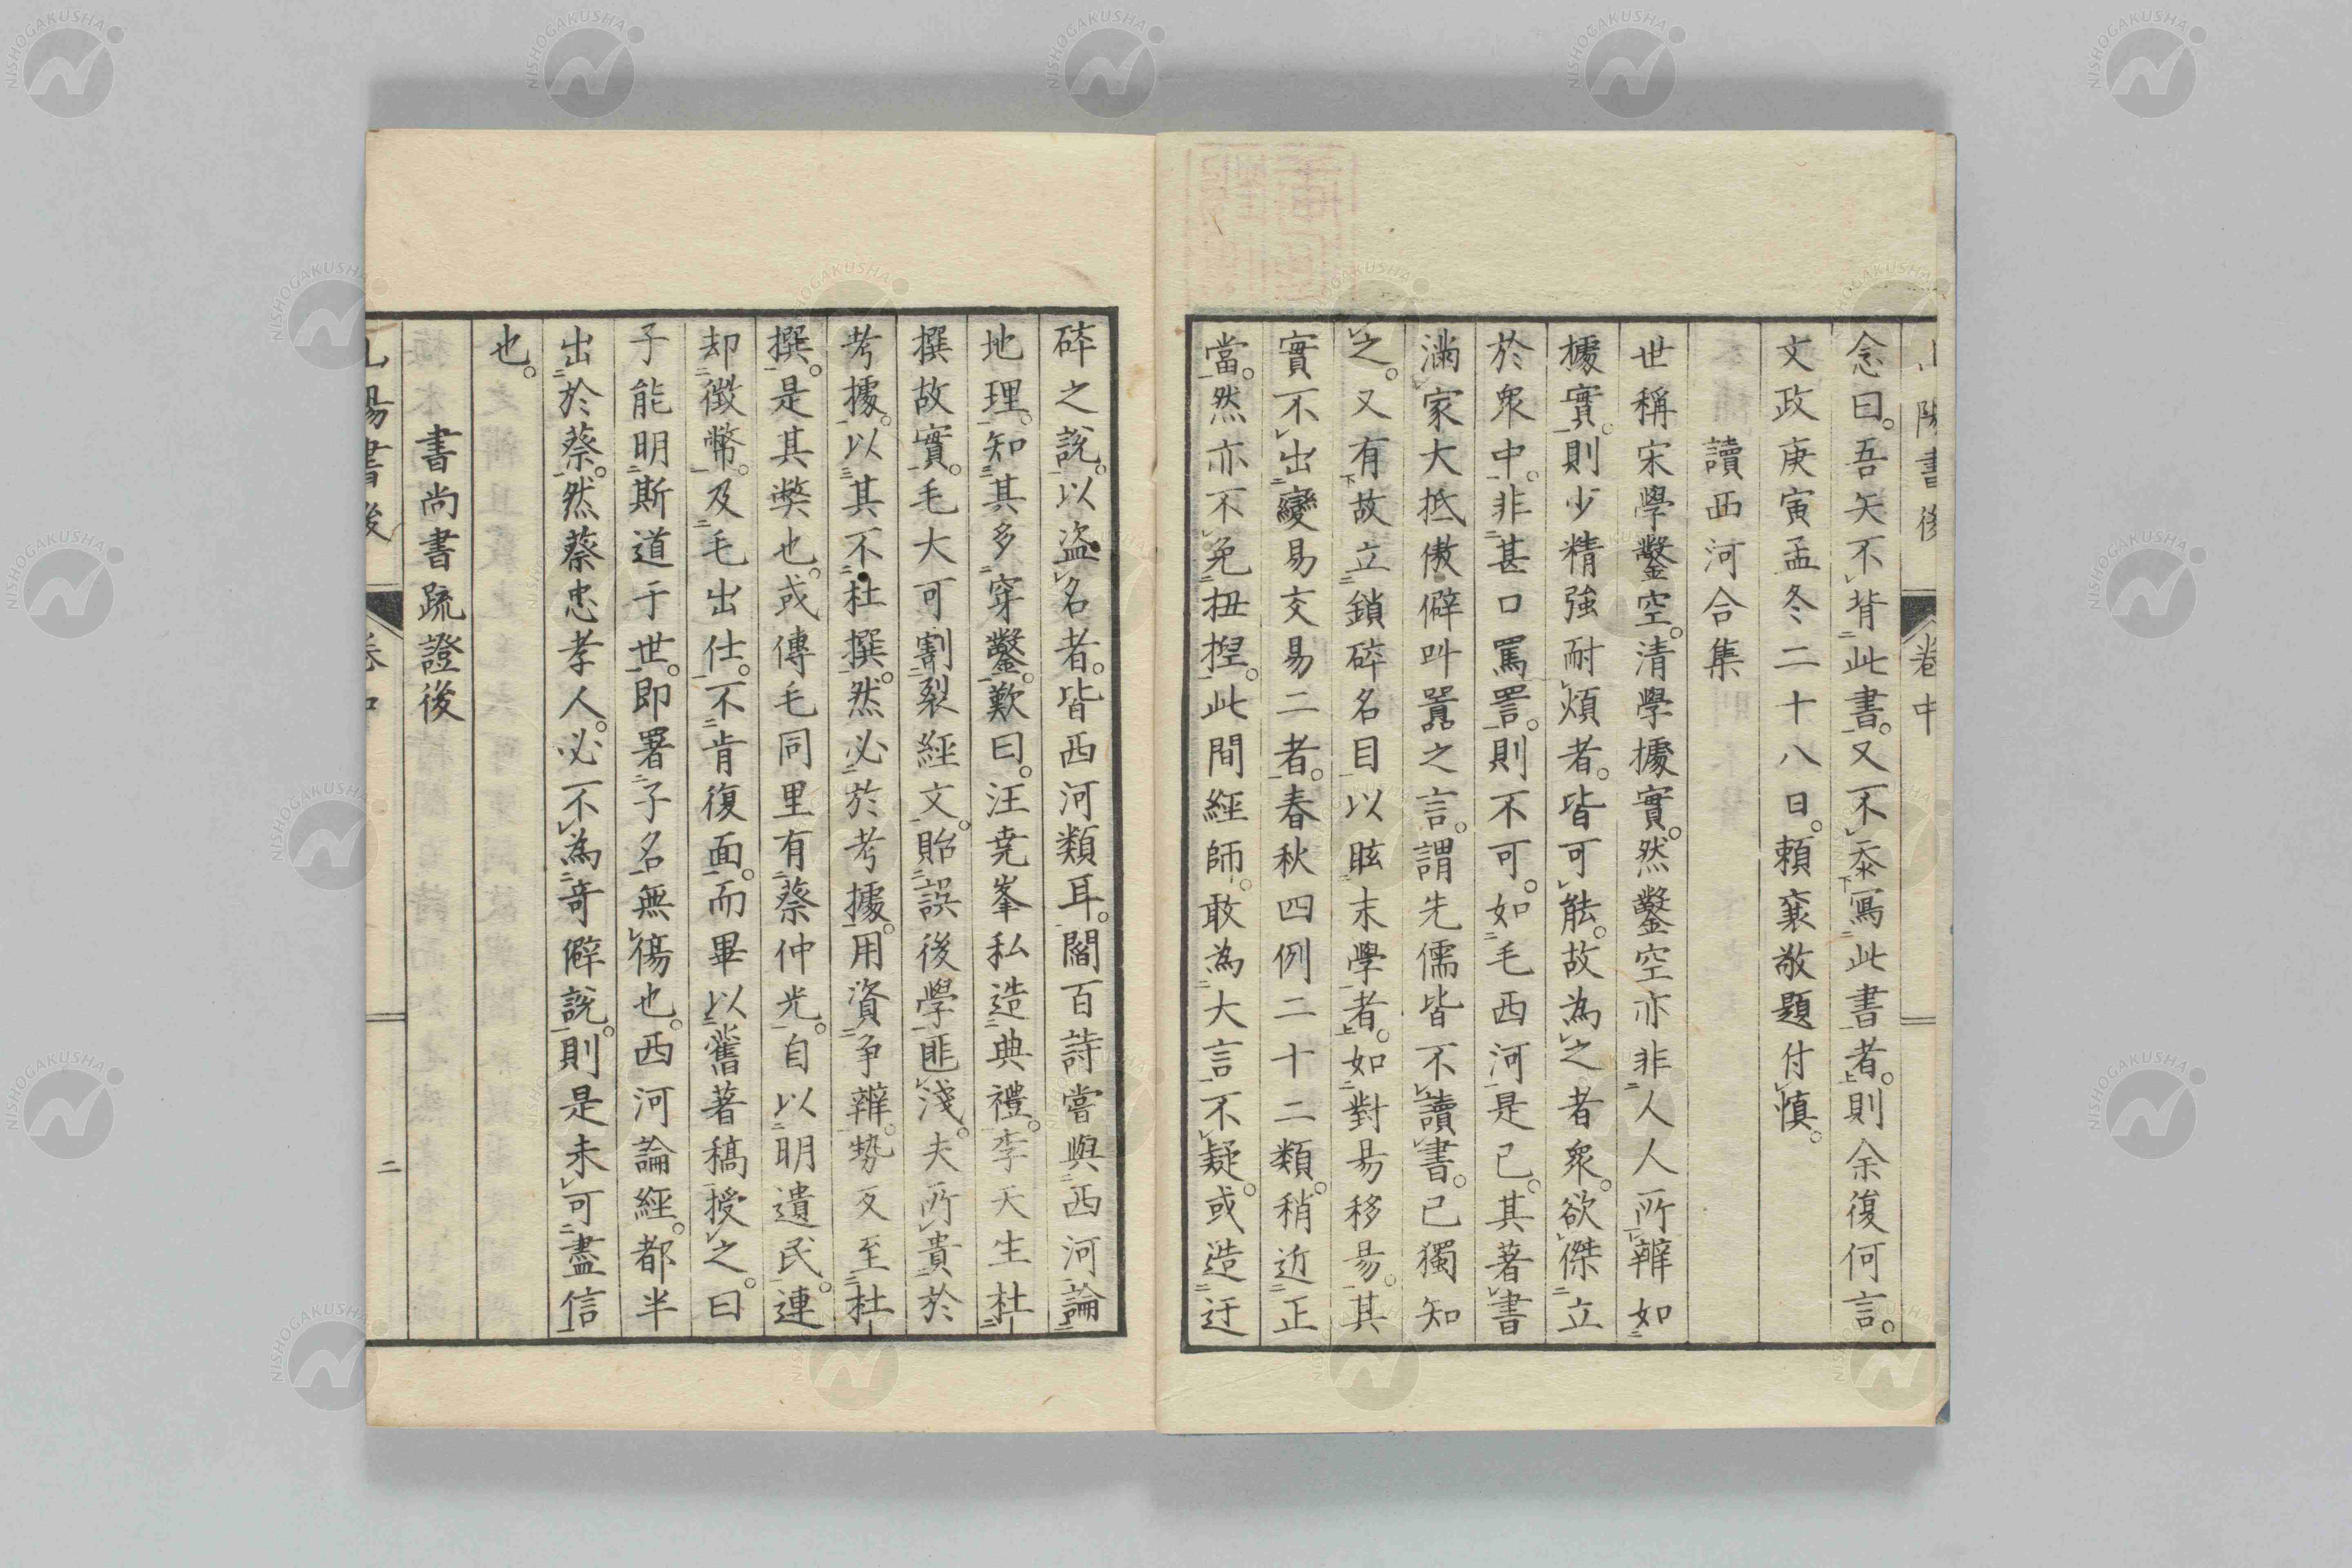 山陽書後 卷中
念曰。吾矢不背此書。又不忝寫此書者。則余復何言。
文政庚寅孟冬二十八日。賴襄敬題付慎。
讀西河合集
世稱宋學鑿空。清學據實。然鑿空亦非人人所辨。如
據實。則少精強耐煩者。皆可能。故為之者衆。欲傑立
於衆中。非甚口罵詈。則不可。如毛西河是已。其著書
滿家大抵傲僻叫囂之言。謂先儒皆不讀書。己獨知
之。又有故立鎖碎名目以眩末學者。如對易移易。其
實不出變易交易二者。春秋四例二十二類。稍近正
當。然亦不免扭揑。此間經師。敢為大言不疑。或造迂
碎之說。以盜名者。皆西河類耳。閻百詩嘗與西河論
地理。知其多穿鑿。歎曰。汪堯峯私造典禮。李天生杜
撰故實。毛大可割裂經文。貽誤後學匪淺。夫所貴於
考據。以其不杜撰。然必於考據。用資爭辨。勢反至杜
撰。是其獘也。或傳毛同里有蔡仲光。自以明遺民。連
却徵幣。及毛出仕。不肯復面。而畢以舊著稿授之。曰
子能明斯道于世。即署子名無傷也。西河論經。都半
出於蔡。然蔡忠孝人。必不為奇僻說。則是未可盡信
也。
書尚書疏證後
山陽書後 卷中 二
NISHOGAKUSHA